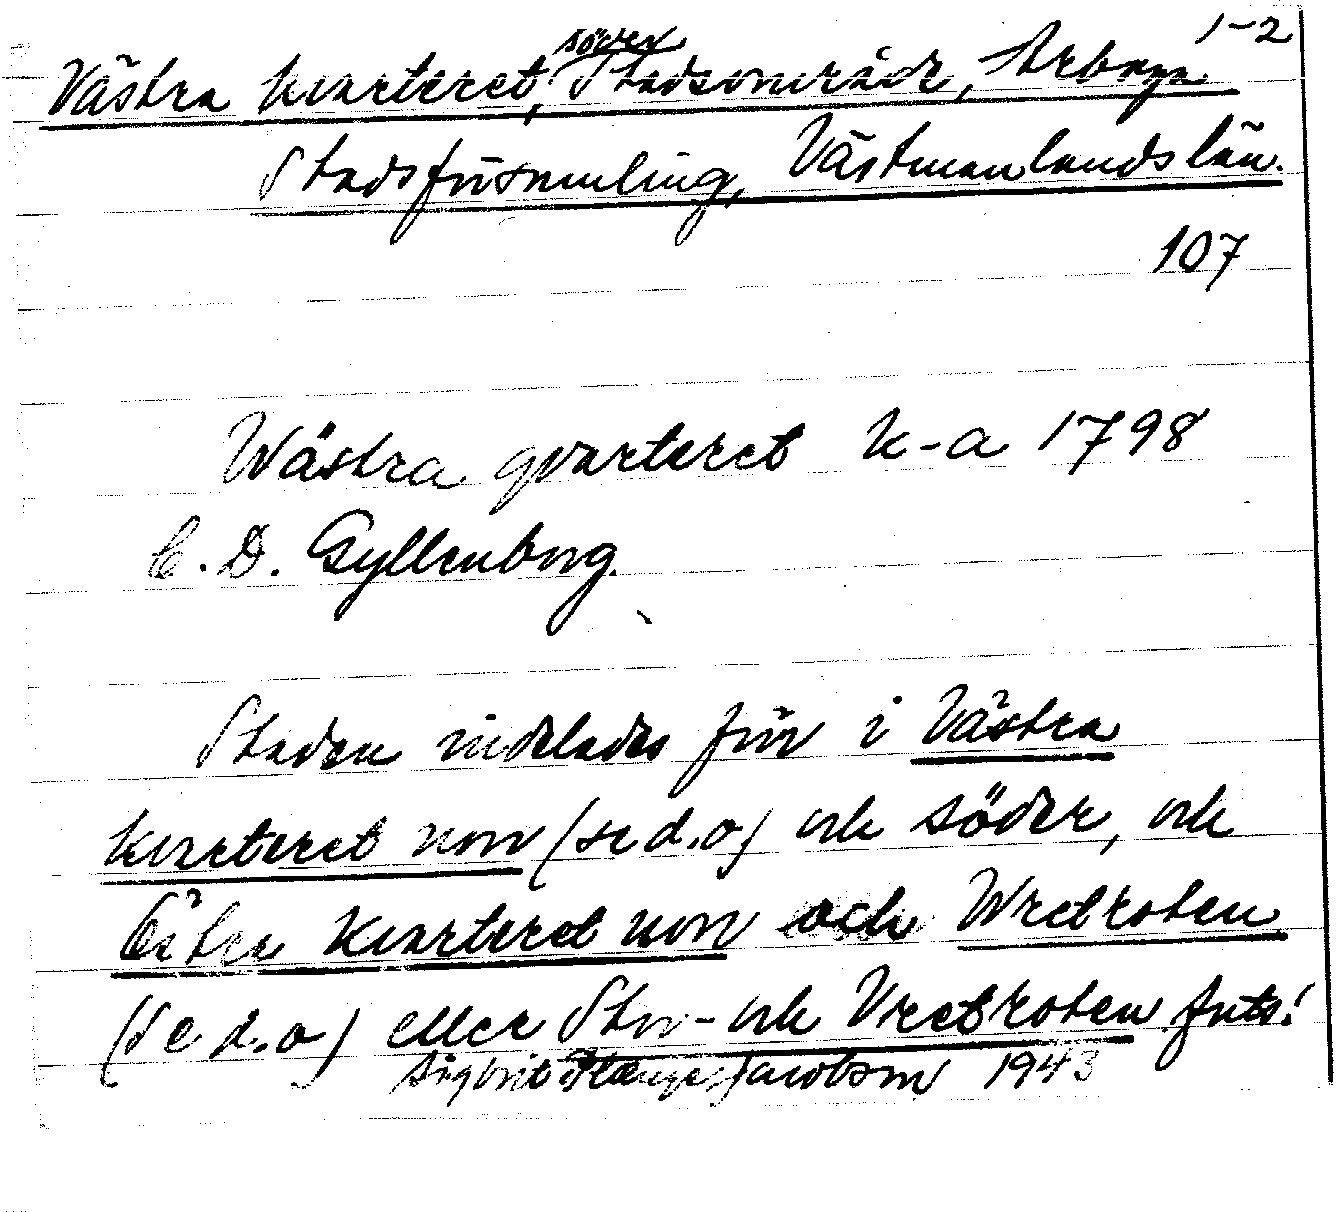 1-2
Västra kvarteret, söder Stadsområde, Arboga
Stadsförsamling, Västmanlands län.
107
Wästra qvarteret k-a 1798
C. D. Gyllenborg.
Staden indelades förr i Västra
kvarteret norr (se d.o) och söder, och
Östra kvarteret norr och Wretroten
(se d.o) eller Stor- och Vretroten forts!
Sigbrit Plænge Jacobson 1943